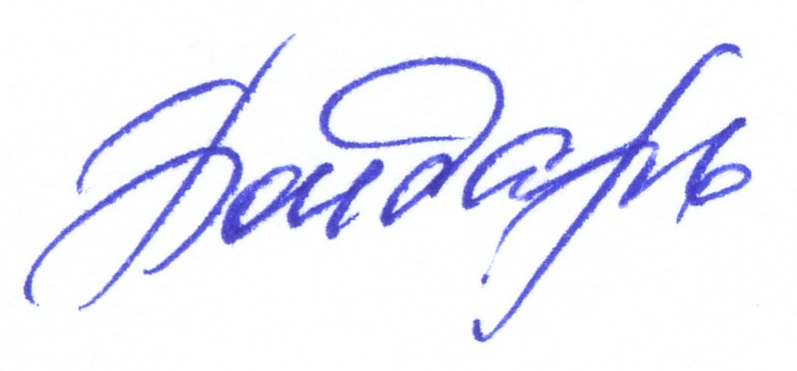 Бондарь